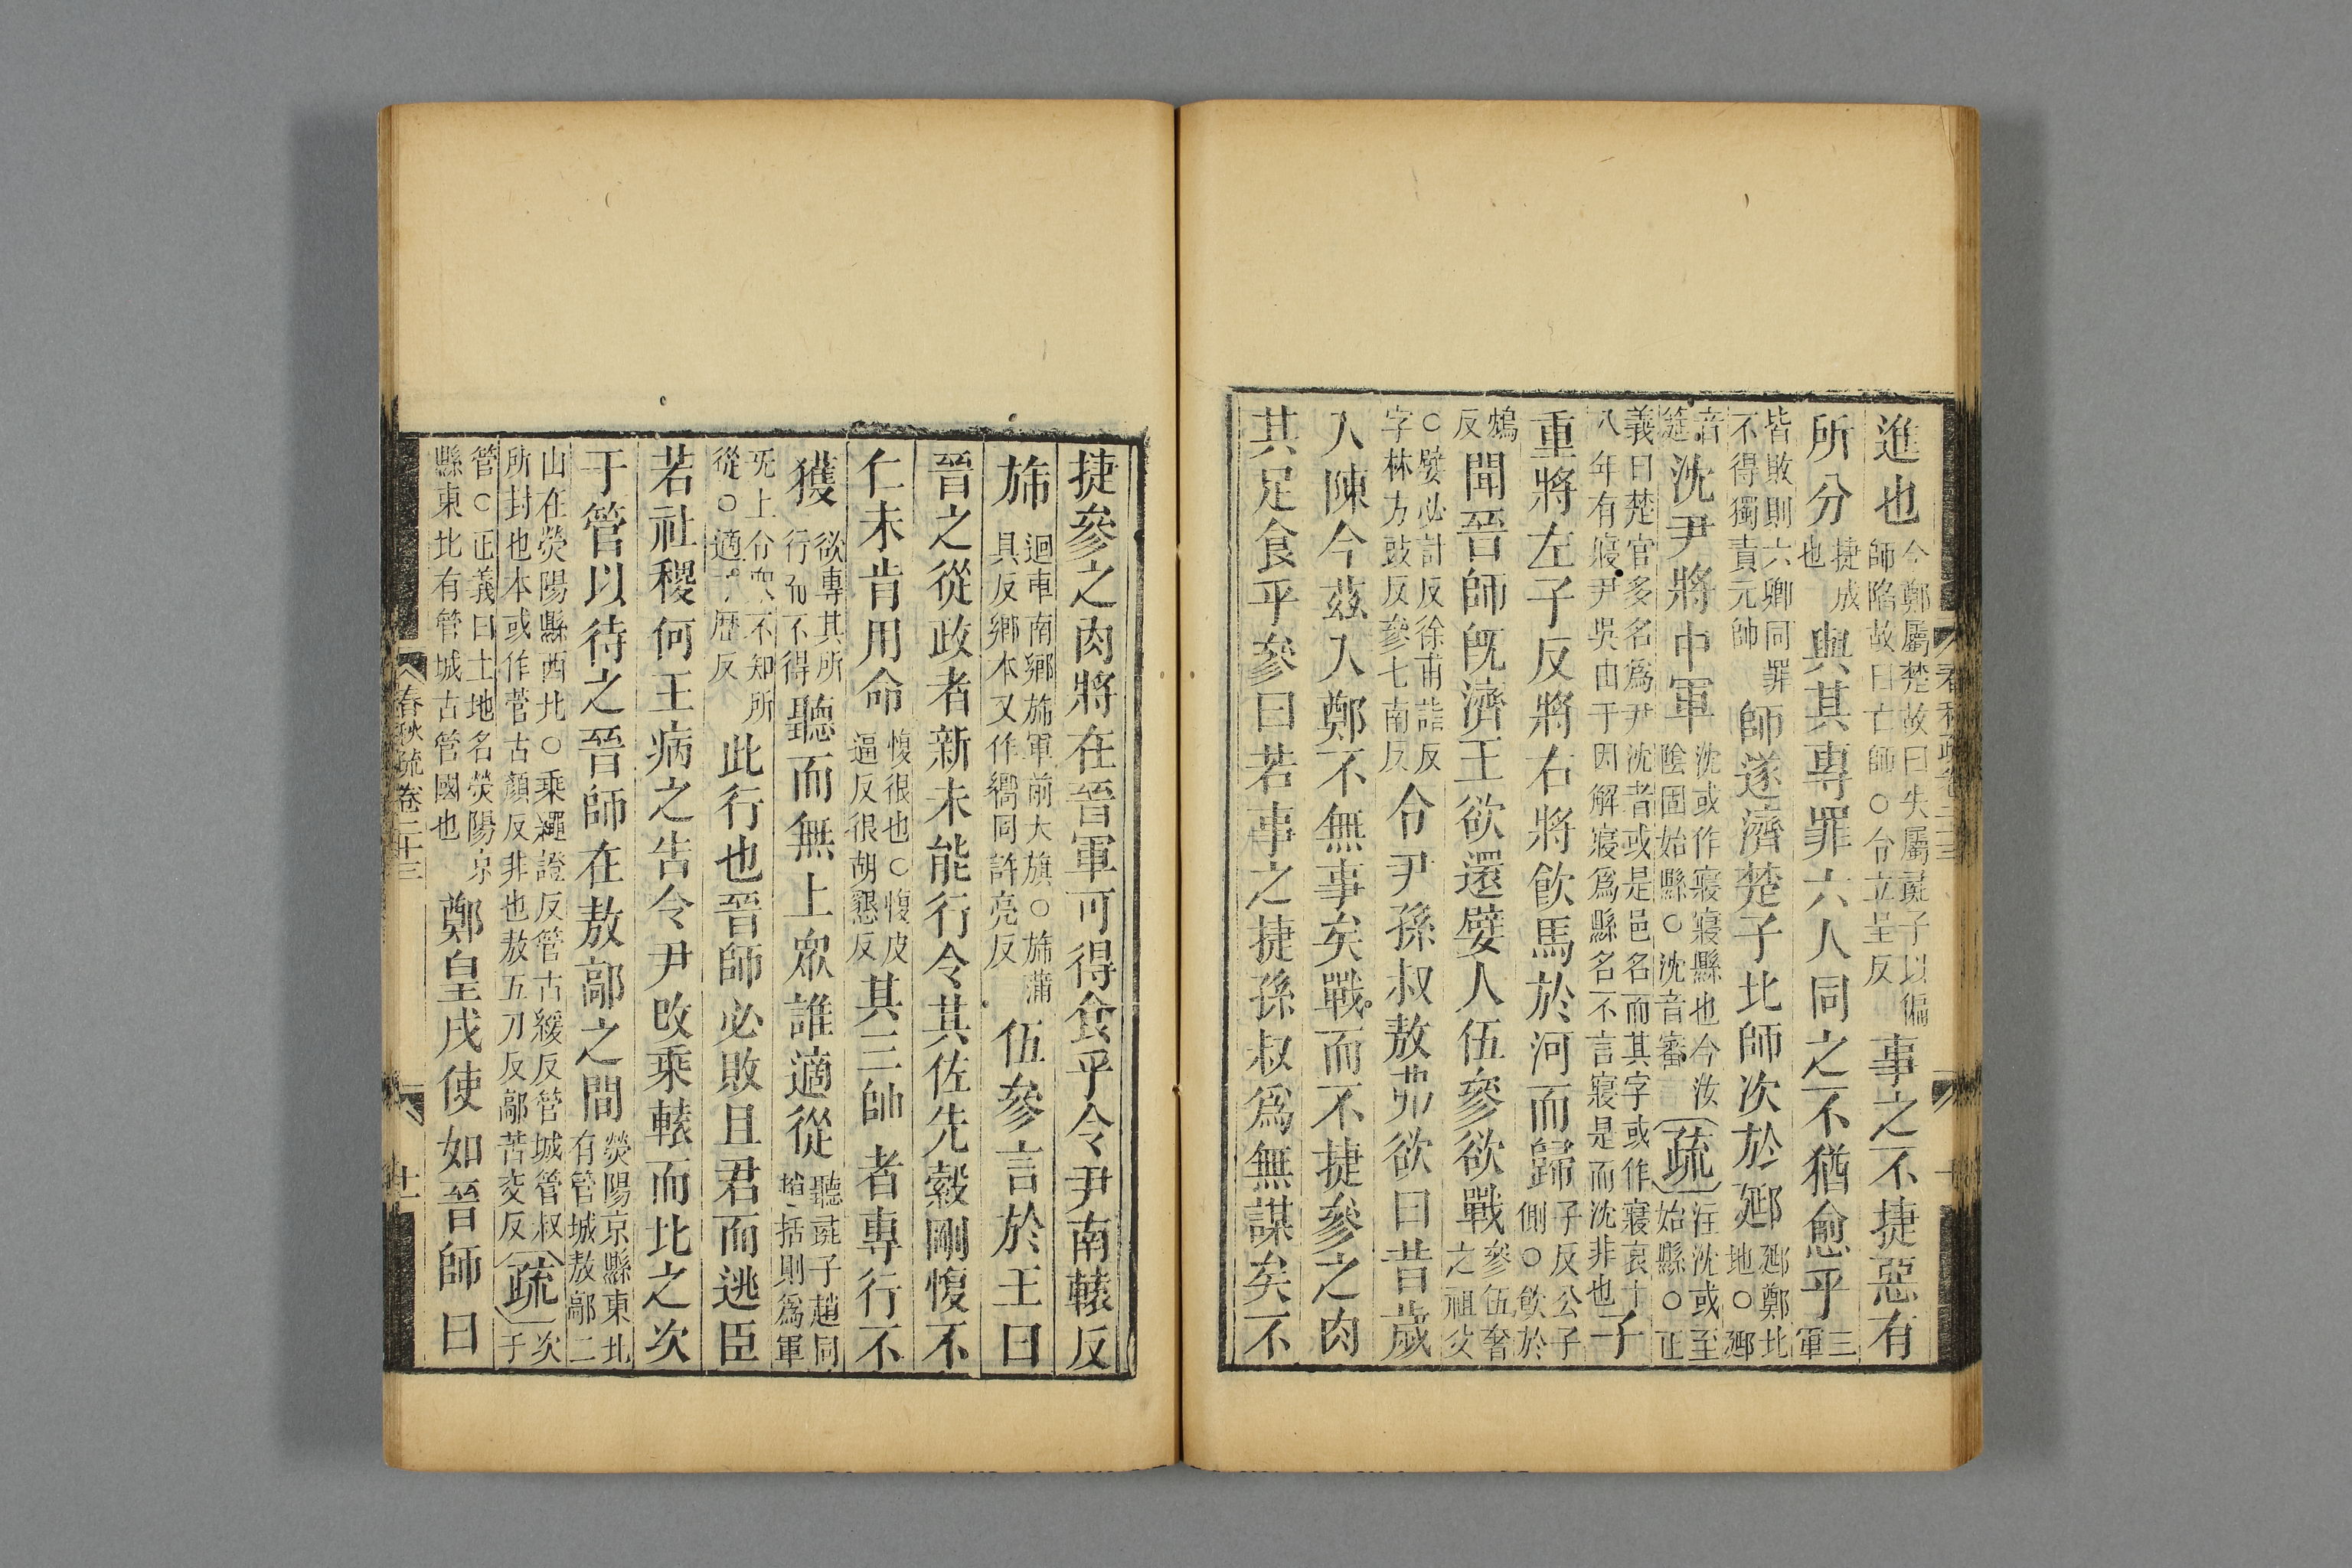 進也今鄭屬楚故曰失屬彘子以偏師陷故曰亡師○令立呈反事之不捷惡有
所分捷成也與其專罪六人同之不猶愈乎三軍
皆敗則六卿同罪不得獨責元帥師遂濟楚子北師次於郔郔鄭北地○郔
音延沈尹將中軍沈或作寢寢縣也今汝陰固始縣○沈音審疏注沈或至始縣○正
義曰楚官多名爲尹沈者或是邑名而其字或作寢哀十八年有寢尹吳由于因解寢爲縣名不言寢是而沈非也子
重將左子反將右將飲馬於河而歸子反公子側○飲於
鴆反聞晉師旣濟王欲還嬖人伍參欲戰參伍奢之祖父
○嬖必計反徐甫詣反字林方豉反參七南反令尹孫叔敖弗欲曰昔歲
入陳今茲入鄭不無事矣戰而不捷參之肉
其足食乎參曰若事之捷孫叔爲無謀矣不
捷參之肉將在晉軍可得食乎令尹南轅反
旆迴車南鄉旆軍前大旗○旆蒲具反鄉本又作嚮同許亮反伍參言於王曰
晉之從政者新未能行令其佐先縠剛愎不
仁未肯用命愎很也○愎皮逼反很胡懇反其三帥者專行不
獲欲專其所行而不得聽而無上眾誰適從聽彘子趙同趙括則爲軍
旡上令眾不知所從○適丁歷反此行也晉師必敗且君而逃臣
若社稷何王病之告令尹攺乘轅而北之次
于管以待之晉師在敖鄗之間熒陽京縣東北有管城敖鄗二
山在熒陽縣西北○乘繩證反管古緩反管城管叔所封也本或作菅古顏反非也敖五刀反鄗苦交反疏次于
管○正義曰土地名熒陽京縣東北有管城古管國也鄭皇戌使如晉師曰
春秋疏卷二十三
十一